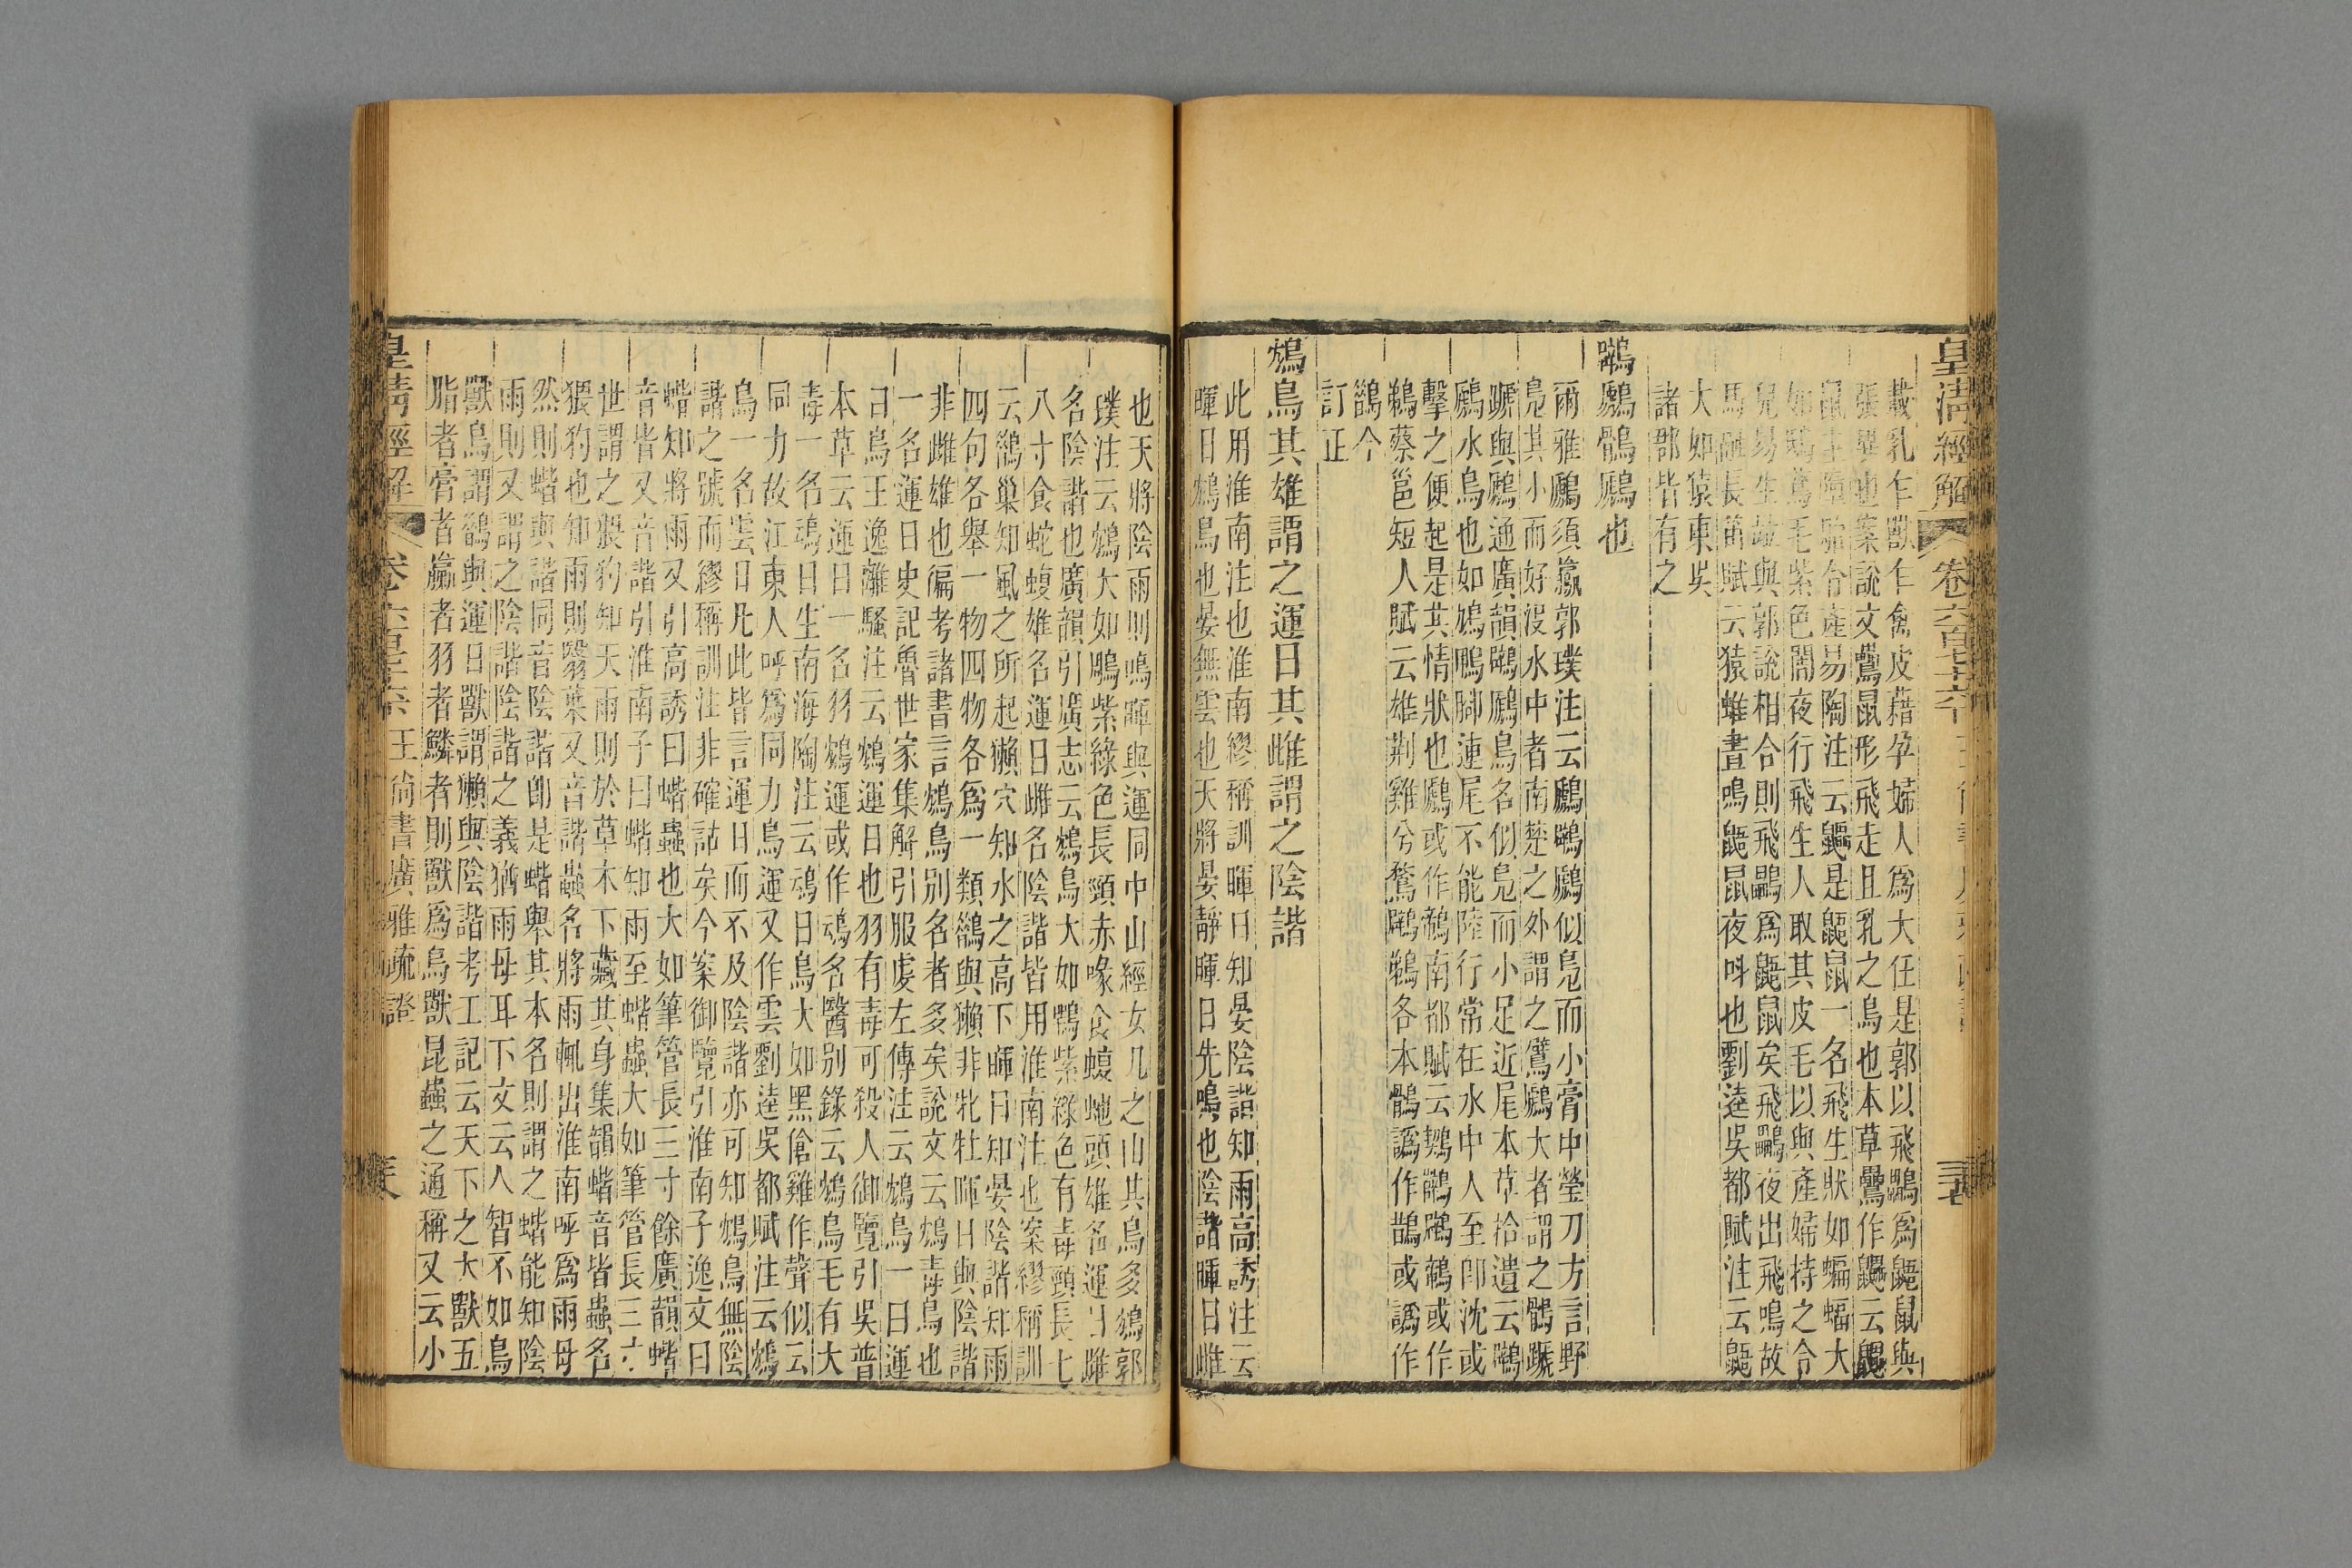 皇清經解 卷六百七十六
載乳乍獸乍禽皮藉孕婦人爲大任是郭以飛鸓爲鼯鼠與
張異也案說文鸓鼠形飛走且乳之鳥也本草鸓作鼺云鼺
鼠主墮胎令產易陶注云鼺是鼯鼠一名飛生狀如蝙蝠大
如鴟鳶毛紫色闇夜行飛生人取其皮毛以與產婦持之令
兒易生故與郭說相合則飛鸓爲鼯鼠矣飛鸓夜出飛鳴故
馬融長笛賦云猿蜼晝鳴鼯鼠夜叫也劉逵吳都賦注云鼯
大如猿東吳
諸郡皆有之
鷿鷉鶻鷉也
爾雅鷉須蠃郭璞注云鷉鷿鷉似鳧而小膏中瑩刀方言野
鳧其小而好沒水中者南楚之外謂之鷿鷉大者謂之鶻蹏
蹏與鷉通廣韻鷿鷉鳥名似鳧而小足近尾本草拾遺云鷿
鷉水鳥也如鳩鴨腳連尾不能陸行常在水中人至卽沈或
擊之便起是其情狀也鷉或作鵜南都賦云鷿鵜鵜或作
鵜蔡邕短人賦云雄荆雞兮鶩鷿鵜各本鶻譌作鵲或譌作
鶺今
訂正
鴆鳥其雄謂之運日其雌謂之陰諧
此用淮南注也淮南繆稱訓暉日知晏陰諧知雨高誘注云
暉日鴆鳥也晏無雲也天將晏靜暉日先鳴也陰諧暉日雌
也天將陰雨則鳴暉與運同中山經女几之山其鳥多鴆郭
璞注云鴆大如鵰紫綠色長頸赤喙食蝮蛇頭雄名運日雌
名陰諧也廣韻引廣志云鴆鳥大如鴞紫綠色有毒頸長七
八寸食蛇蝮雄名運日雌名陰諧皆用淮南注也案繆稱訓
云鵲巢知風之所起獺穴知水之高下暉日知晏陰諧知雨
四句各舉一物四物各爲一類鵲與獺非牝牡暉日與陰諧
非雌雄也徧考諸書言鴆鳥別名者多矣說文云鴆毒鳥也
一名運日史記魯世家集解引服虔左傳注云鴆鳥一曰運
日鳥王逸離騷注云鴆運日也羽有毒可殺人御覽引吳普
本草云運日一名羽鴆運或作䲰名醫別錄云鴆鳥毛有大
毒一名䲰日生南海陶注云䲰日鳥大如黑傖雞作聲似云
同力故江東人呼爲同力鳥運又作雲劉逵吳都賦注云鴆
鳥一名雲日凡此皆言運日而不及陰諧亦可知鴆鳥無陰
諧之號而繆稱訓注非確詁矣今案御覽引淮南子逸文曰
蝔知將雨又引高誘曰蝔蟲也大如筆管長三寸餘廣韻蝔
音皆又音諧引淮南子曰蝔知雨至蝔蟲大如筆管長三寸
世謂之猥狗知天雨則於草木下藏其身集韻蝔音皆蟲名
猥狗也知雨則翳葉又音諧蟲名將雨輒出淮南呼爲雨母
然則蝔與諧同音陰諧卽是蝔舉其本名則謂之蝔能知陰
雨則又謂之陰諧陰諧之義猶雨母耳下文云人智不如鳥
獸鳥謂鵲與運日獸謂獺與陰諧考工記云天下之大獸五
脂者膏者臝者羽者鱗者則獸爲鳥獸昆蟲之通稱又云小
皇清經解 卷六百七十六 王尙書廣雅疏證